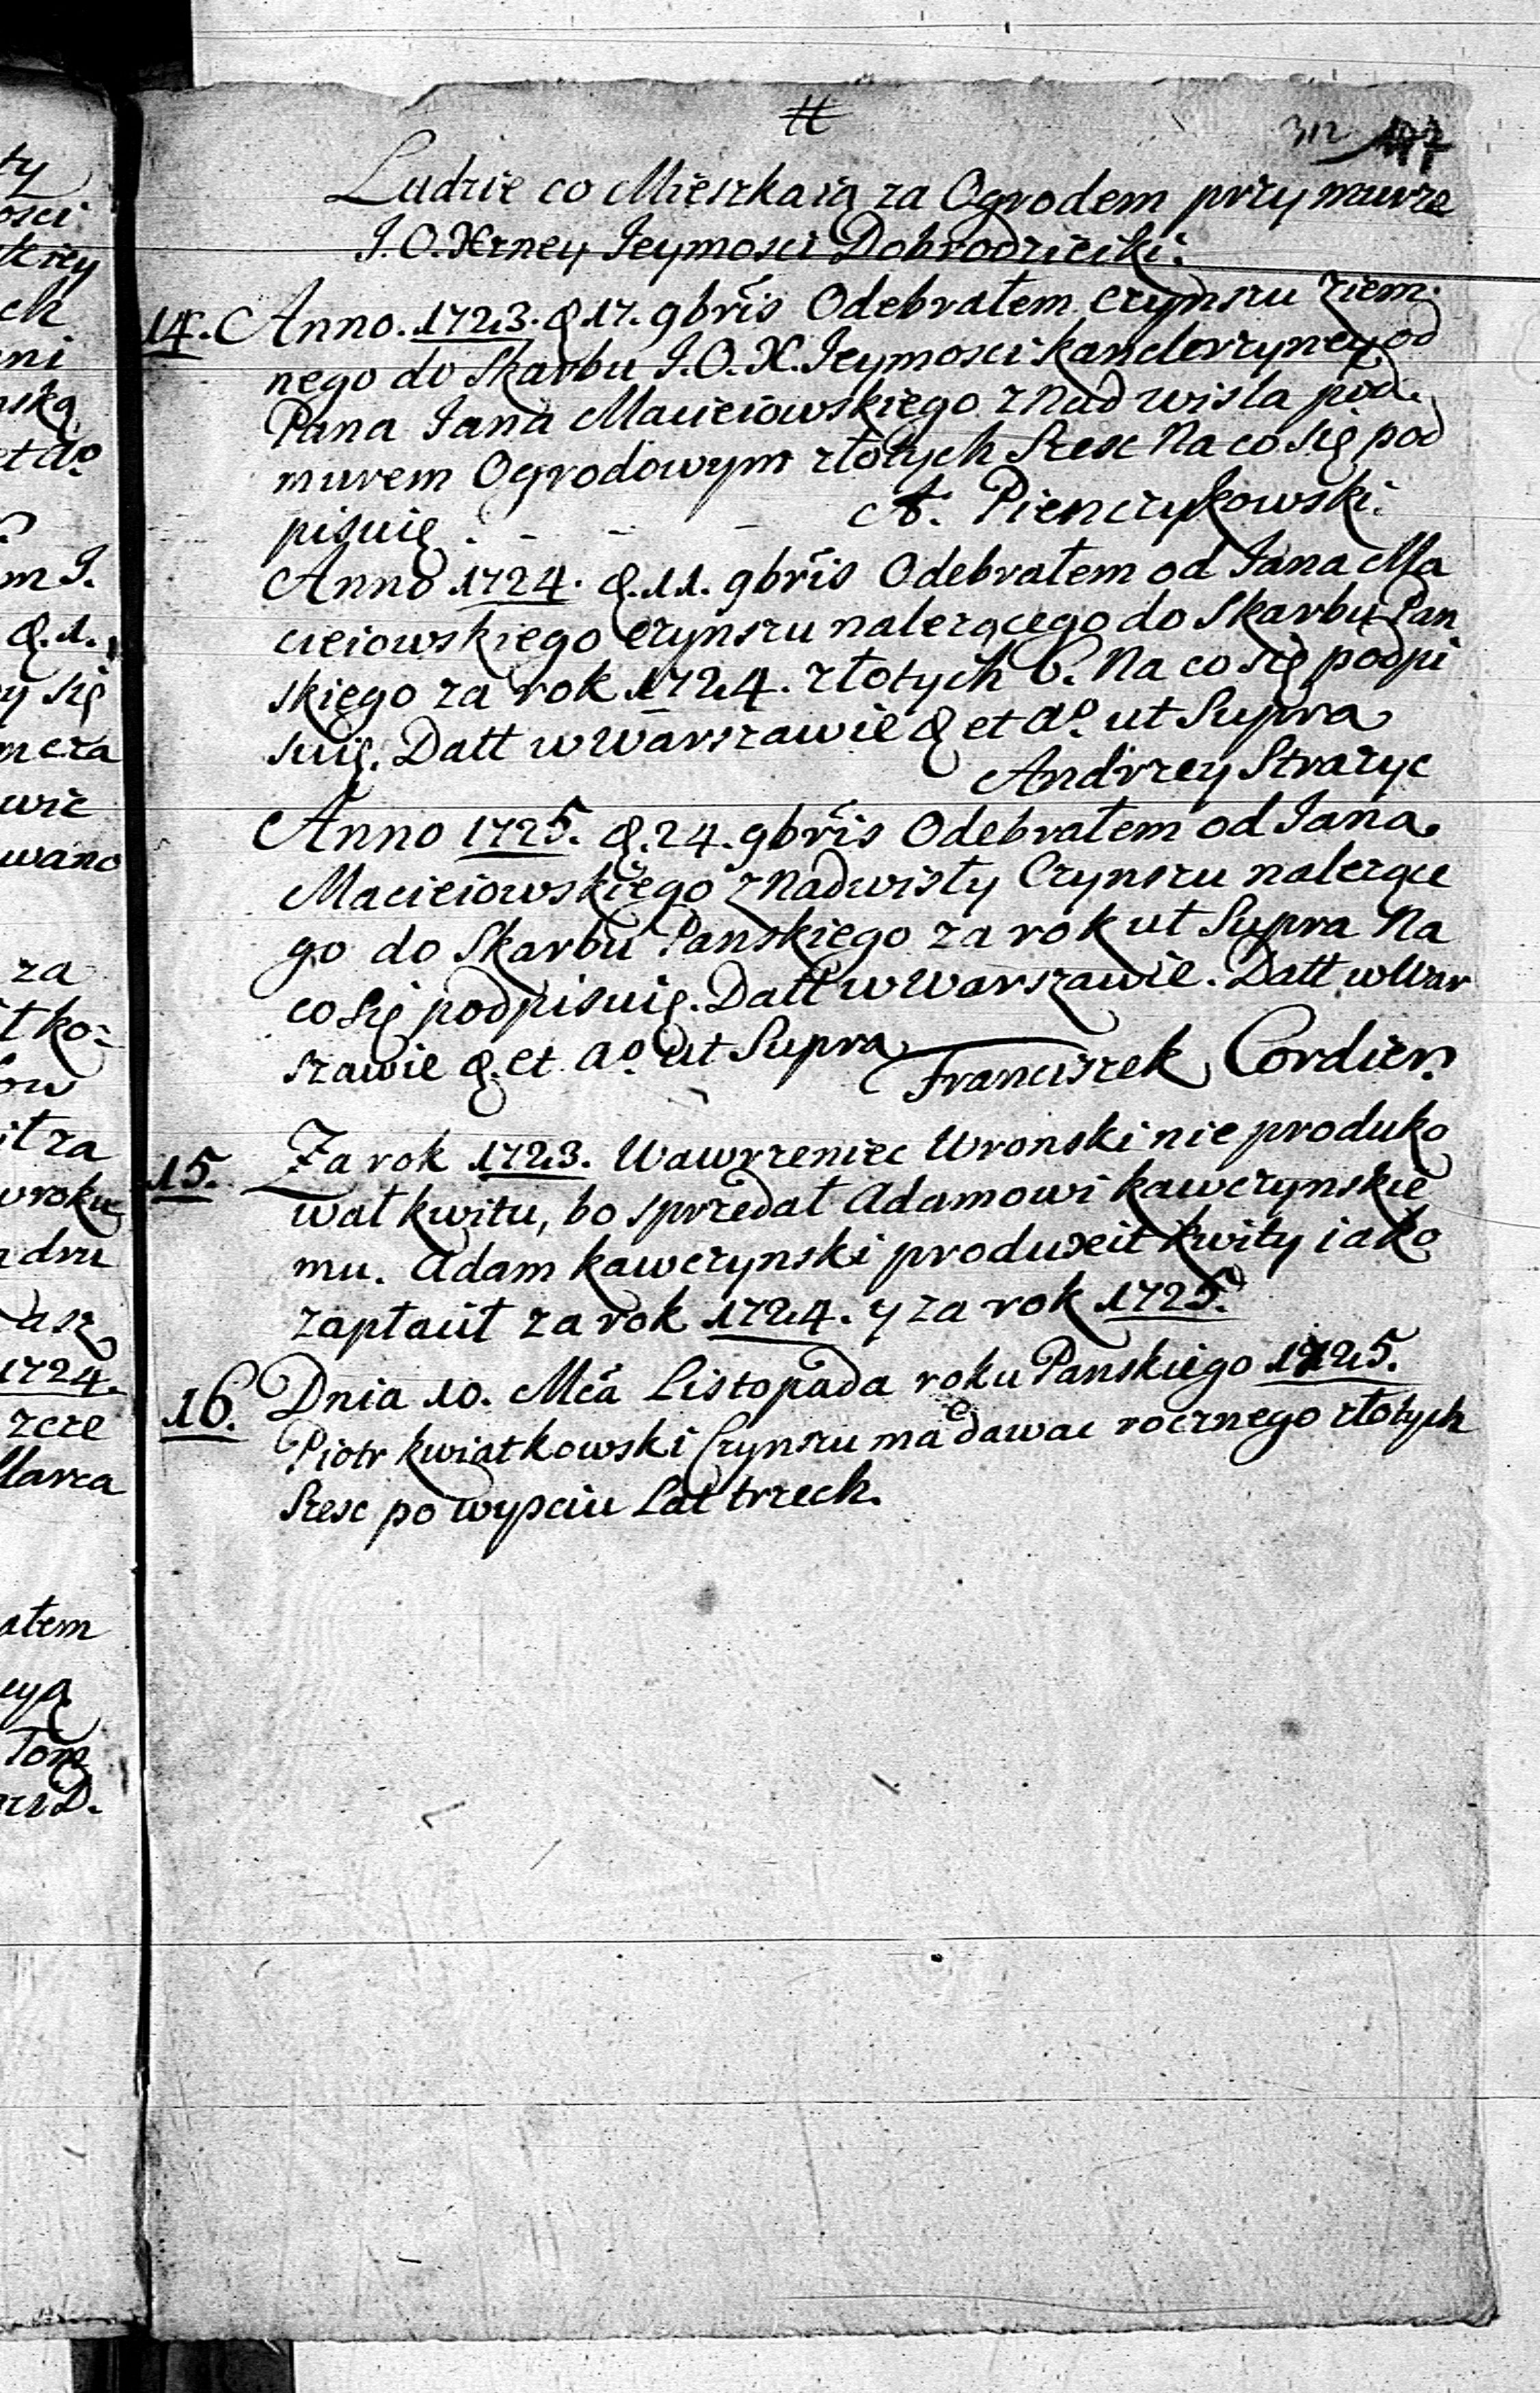 #
312
Ludzie co Mieszkaią za Ogrodem przy murze
J. O. Xzney Jeymosci Dobrodzieiki.
14. Anno. 1723. d 17. 9bris Odebrałem Czynszu Ziem:
nego do Skarbu J. O. X. Jeymosci kanclerzyney od
Pana Jana Macieiowskiego z Nad wisła pod
murem Ogrodowym złotych Szesc Na co się pod
pisuię. - - - A. Pienczykowski.
Anno 1724. d. 11. 9bris Odebrałem od Jana Ma
cieiowskiego Czynszu nalezącego do Skarbu Pan
skiego za rok 1724. złotych 6. Na co się podpi
suię. Datt w Warszawie d et ao. ut Supra
Andrzey Strazyc
Anno 1725. d. 24. 9bris Odebrałem od Jana
Macieiowskiego z Nadwisły Czynszu nalezące
go do Skarbu Panskiego za rok ut Supra Na
co się podpisuię. Datt w Warszawie. Datt w War
szawie d. et ao. ut Supra Franciszek Cordier.
15. Za rok 1723. Wawrzeniec Wronski nie produko
wał kwitu, bo sprzedał Adamowi kawczynskie
mu. Adam kawczynski produxit kwity iako
zapłacił za rok 1724. y za rok 1725.
16. Dnia 10. Mca Listopada roku Panskiego 1725.
Piotr kwiatkowski Czynszu ma dawac rocznego złotych
Szesc po wysciu Lat trzech.